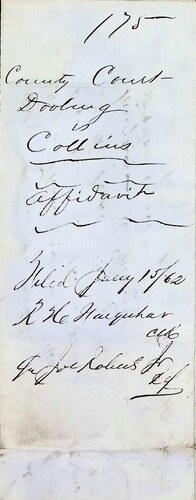 175
County Court
Dooling
vs
Collins
Affidavit
Filed Jany 15/62
R H Farquhar
Clk
Joe Roberts Jr